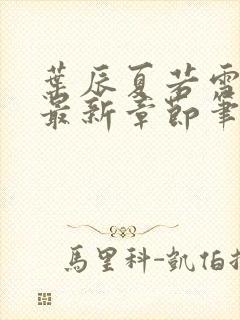 葉辰夏若雪
最新章節筆
馬里科-凱伯